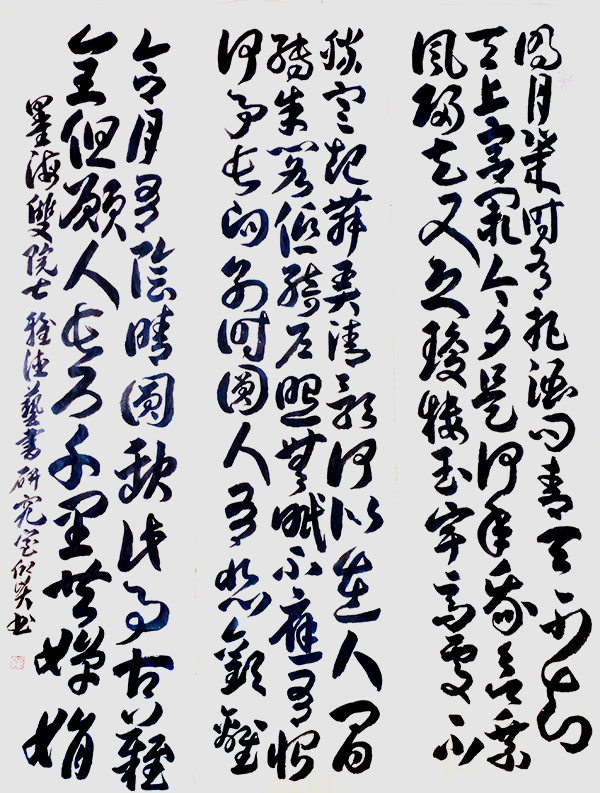 明月幾時有把酒問青天不知
天上宮闕今夕是何年我欲乘
風歸去又恐瓊樓玉宇高處不
勝寒起舞弄清影何似在人間
轉朱閣低綺戶照無眠不應有恨
何事長向別時圓人有悲歡離
合月有陰晴圓缺此事古難
全但願人長久千里共嬋娟
墨海雙院士德藝書研究室書